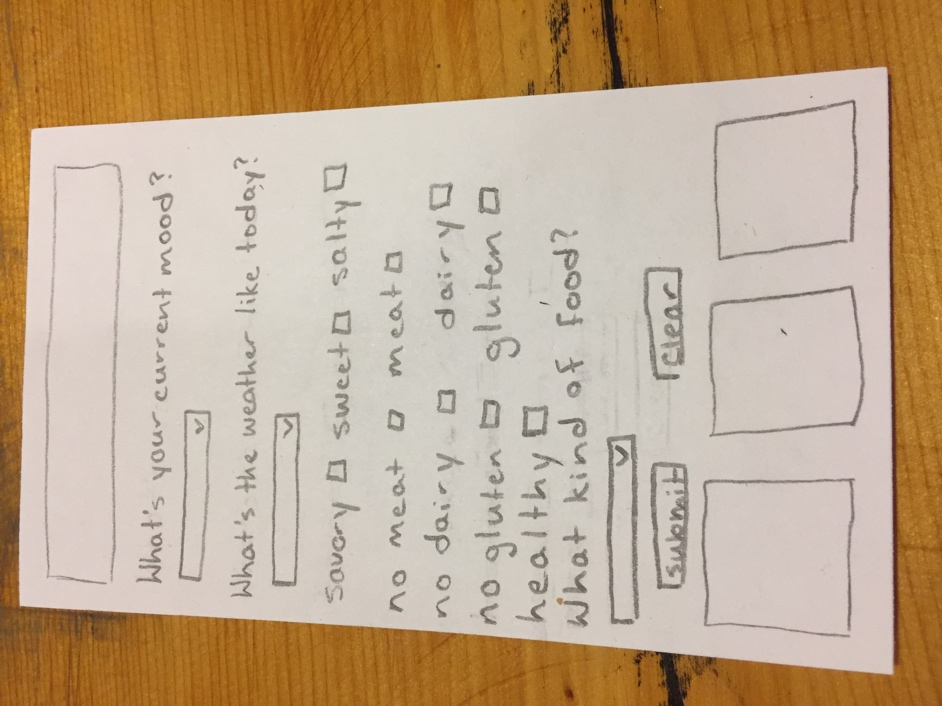 What's your current mood?
What's the weather like today?
Savory sweet salty
no meat meat
no dairy dairy
no gluten gluten
healthy
What kind of food?
submit clear